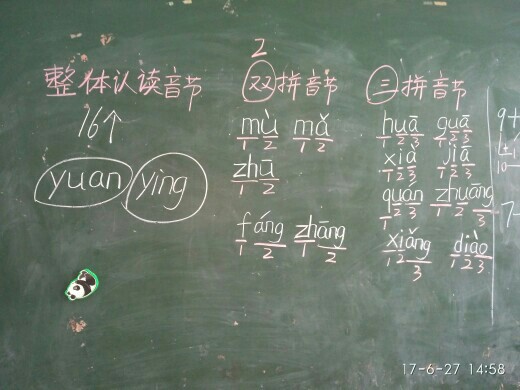 2.
整体认读音节 双拼音节 三拼音节
16个
mù mǎ
1 2 1 2
huā guā
1 2 3 1 2 3
zhū
1 2
xiā jiā
1 2 3 1 2 3
yuan ying
quán zhuāng
1 2 3 1 2 3
fáng zhāng
1 2 1 2
xiǎng diào
1 2 3 1 2 3
9+
10
7-
17-6-27 14:58